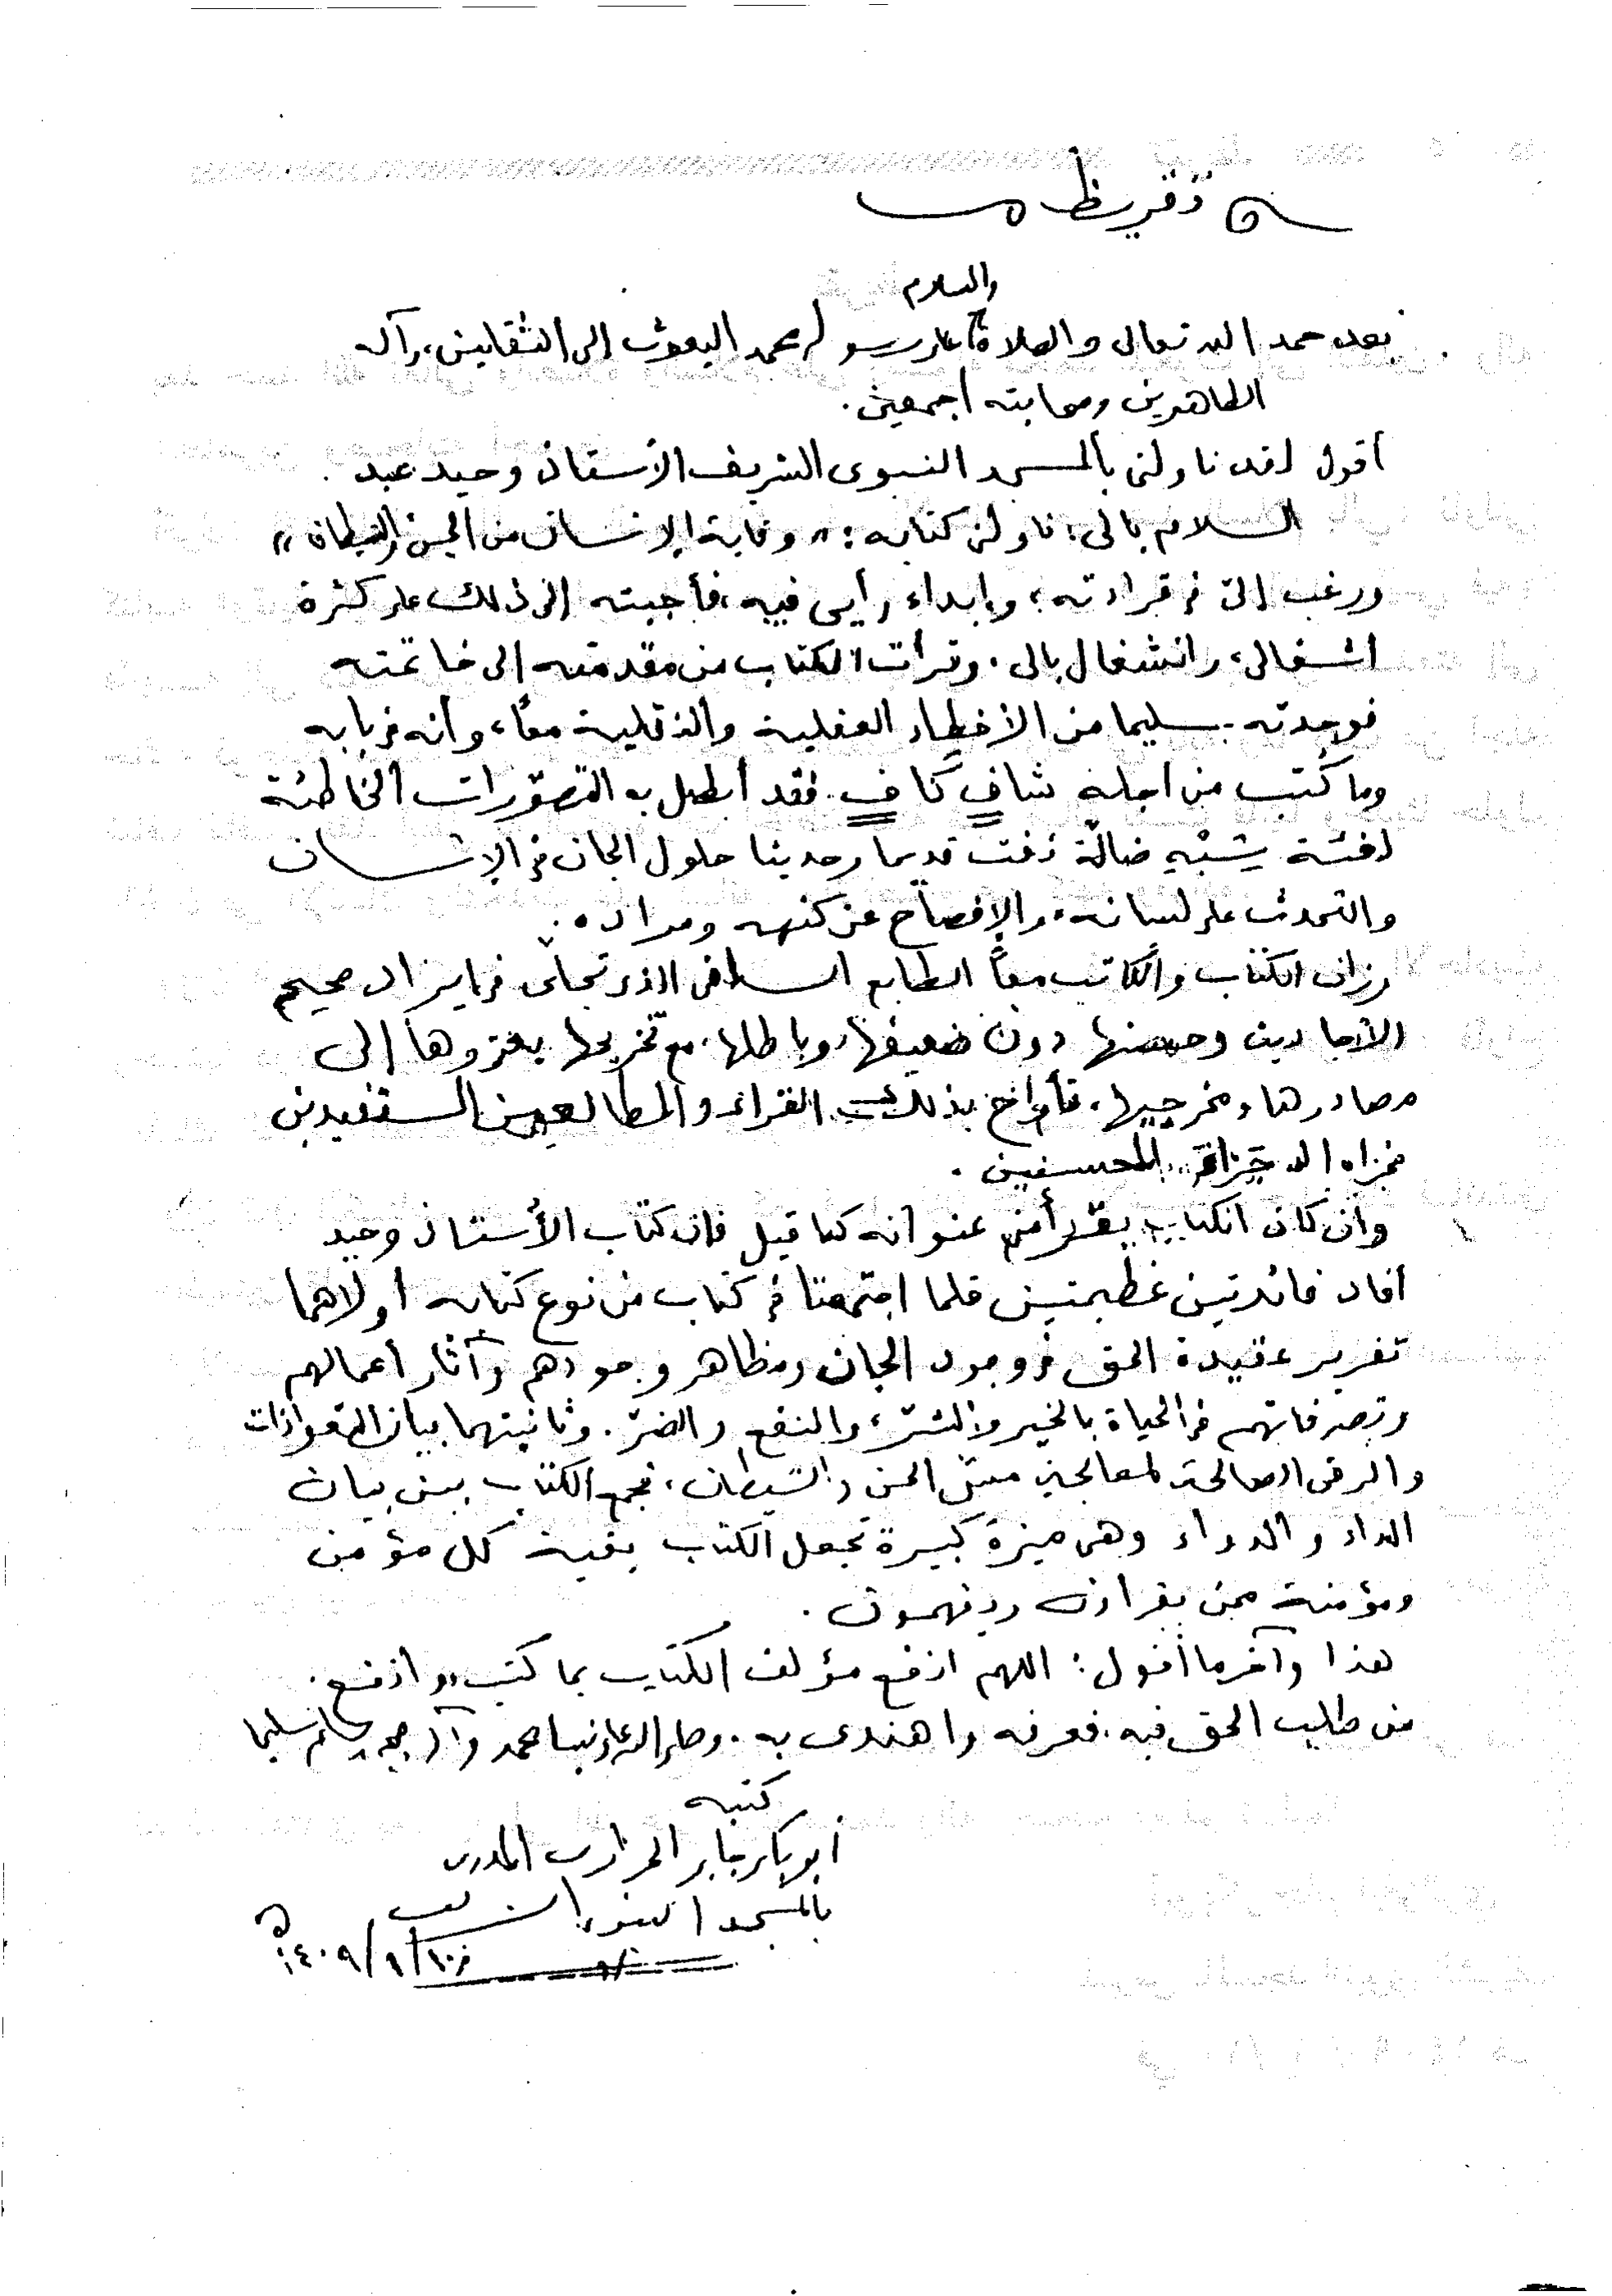 تقريظ
والسلام
بعد حمد الله تعالى والصلاة على رسوله محمد المبعوث إلى الثقلين، وآله
الطاهرين وصحابته أجمعين.
أقول لقد ناولنى بالمسجد النبوى الشريف الأستاذ وحيد عبد
السلام بالى، ناولنى كتابه: «وقاية الإنسان من الجن والشيطان»
ورغب إلىّ فى قراءته، وإبداء رأيى فيه، فأجبته إلى ذلك على كثرة
اشغالى، وانشغال بالى. وقرأت الكتاب من مقدمته إلى خاتمته
فوجدته سليما من الأخطاء العقلية والنقلية معاً، وأنه فى بابه
وما كُتب من أجله شافٍ كافٍ. فقد أبطل به التصوّرات الخاطئة
لفئة شبْهِ ضالّة نفت قديما وحديثا حلول الجان فى الإنسان
والتحدث على لسانه، والإفصاح عن كنهه ومراده.
وزان الكتاب والكاتب معاً الطابع السلفى الذى تجلّى فى إيراد صحيح
الأحاديث وحسنها دون ضعيفها وباطلها، مع تخريجها بعزوها إلى
مصادرها ومخرجيها، فأراح بذلك القراء والمطالعين المستفيدين
فجزاه الله جزاء المحسنين.
وإن كان الكتاب يقرأ من عنوانه كما قيل فإن كتاب الأستاذ وحيد
أفاد فائدتين عظيمتين قلما اجتمعتا فى كتاب من نوع كتابه أولاهما
تقرير عقيدة الحق فى وجود الجان ومظاهر وجودهم وآثار أعمالهم
وتصرفاتهم فى الحياة بالخير والشرّ، والنفع والضرّ. وثانيتهما بيان التعوذات
والرقى الصالحة لمعالجة مسّ الجن والشيطان، فجمع الكتاب بين بيان
الداء والدواء وهى ميزة كبيرة تجعل الكتاب بغية كل مؤمن
ومؤمنة ممن يقرأون ويفهمون.
هذا وآخر ما أقول: اللهم انفع مؤلف الكتاب بما كتب، وانفع
من طلب الحق فيه، فعرفه واهتدى به. وصلى الله على نبينا محمد وآله وصحبه وسلم تسليما
كتبه
أبو بكر جابر الجزائرى المدرس
بالمسجد النبوى الشريف
فى ١٠/٩/١٤٠٩ هـ